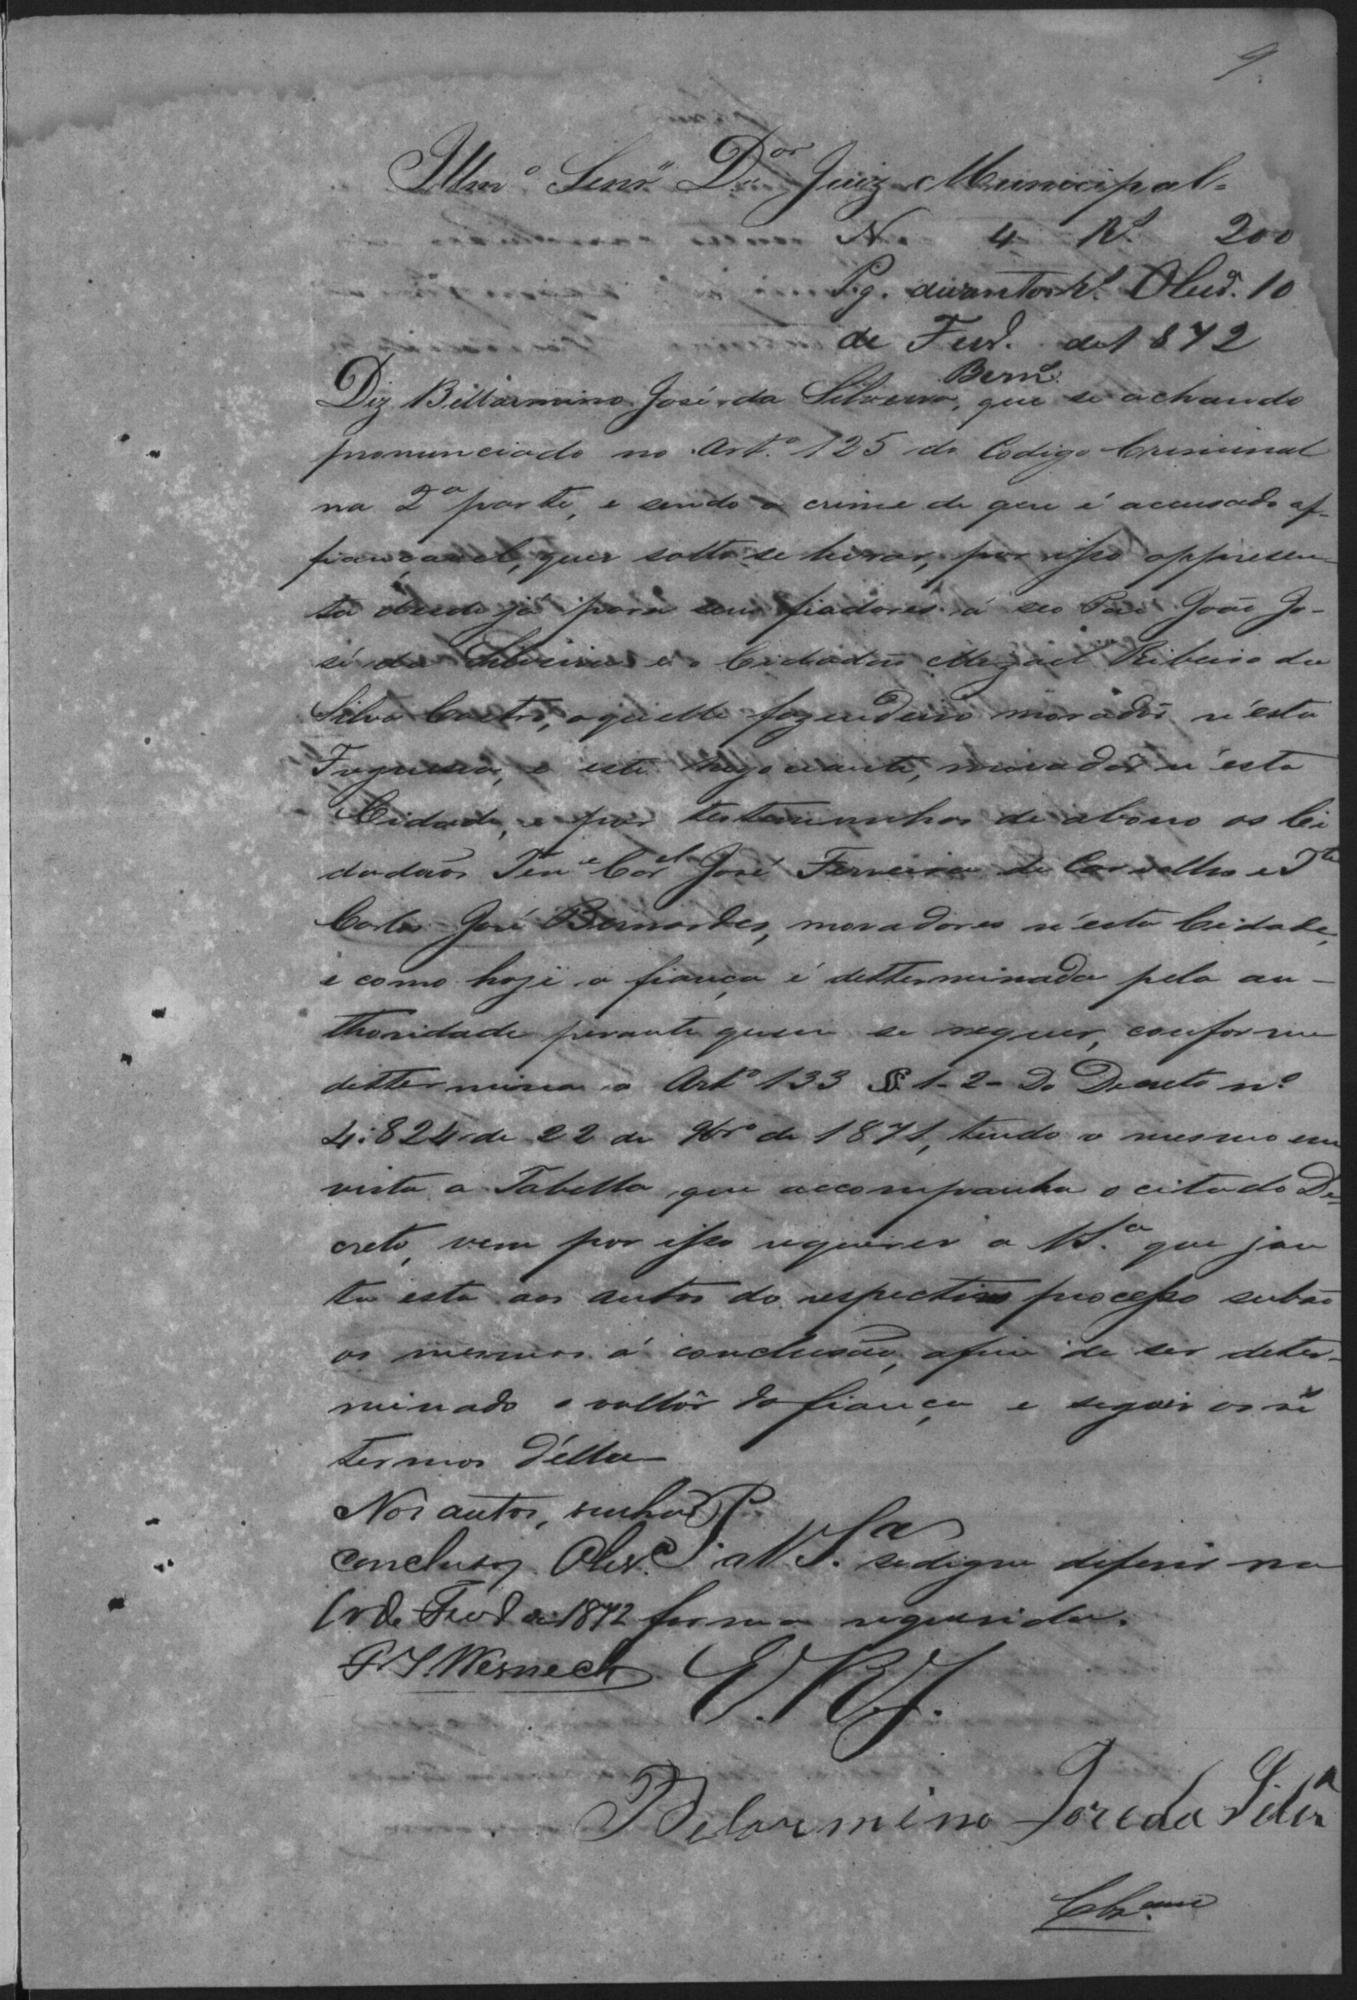 9
Illmº Senrº Dor Juiz Municipal=
N 4 Rs. 200
Pg. duzentos rs. Olivª. 10
de Fevº. de 1872
Bernº.
Diz Bellarmino José da Silveira, que se achando
pronunciado no Artº 125 do Codigo Criminal
na 2ª parte, e sendo o crime de que é accusado af-
fiançavel, quer solto se livrar, por isso appresen-
ta desde já para seus fiadores á seo Pai João Jo-
sé da Silveira e o Cidadão Mizael Ribeiro da
Silva Castro, aquelle fazendeiro moradôr n'esta
Freguesia, e este negociante, morador n'esta
Cidade, e por testemunhas de abono os Ci
dadãos Tene Corel José Ferreira de Carvalho e Te
Carlos José Bernardes, moradores n'esta Cidade,
e como hoje a fiança é detterminada pela au-
thoridade perante quem se requer, conforme
dettermina o Artº 133 §§ 1-2- Do Decreto nº
4:824 de 22 de 9brº de 1871, tendo o mesmo em
vista a Tabella que accompanha o citado De-
creto, vem por isso requerer a V.S.ª que jun
ta esta aos autos do respectivo processo subão
os mesmos á conclusão, afim de ser deter-
minado o vallôr da fiança e seguir os
termos d'ella
Nos autos, venhão P.
conclusos Olivª. P. a V. Sª se digne diferir na
de Fevº de 1872 forma requerida.
Werneck E.R.J.
Belarmino Joze da Silvª